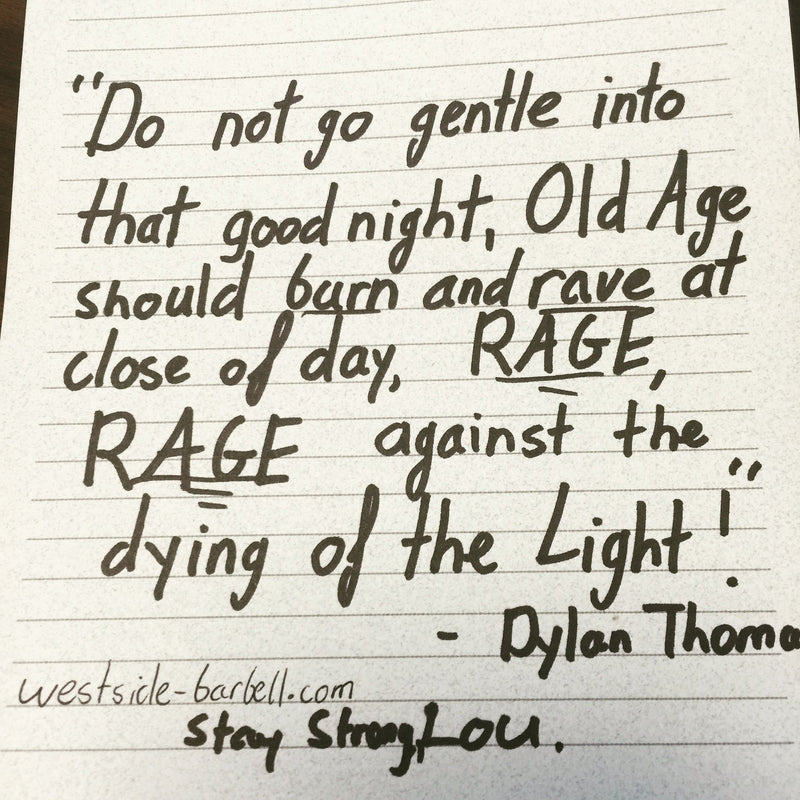 "Do not go gentle into
that good night, Old Age
should burn and rave at
close of day, RAGE,
RAGE against the
dying of the Light!"
- Dylan Thoma
westside-barbell.com
Stay Strong, Lou.